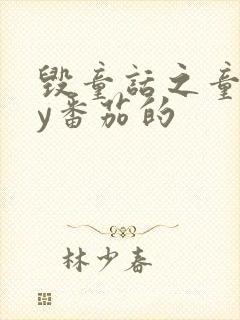 毁童话之童
y番茄的
林少春